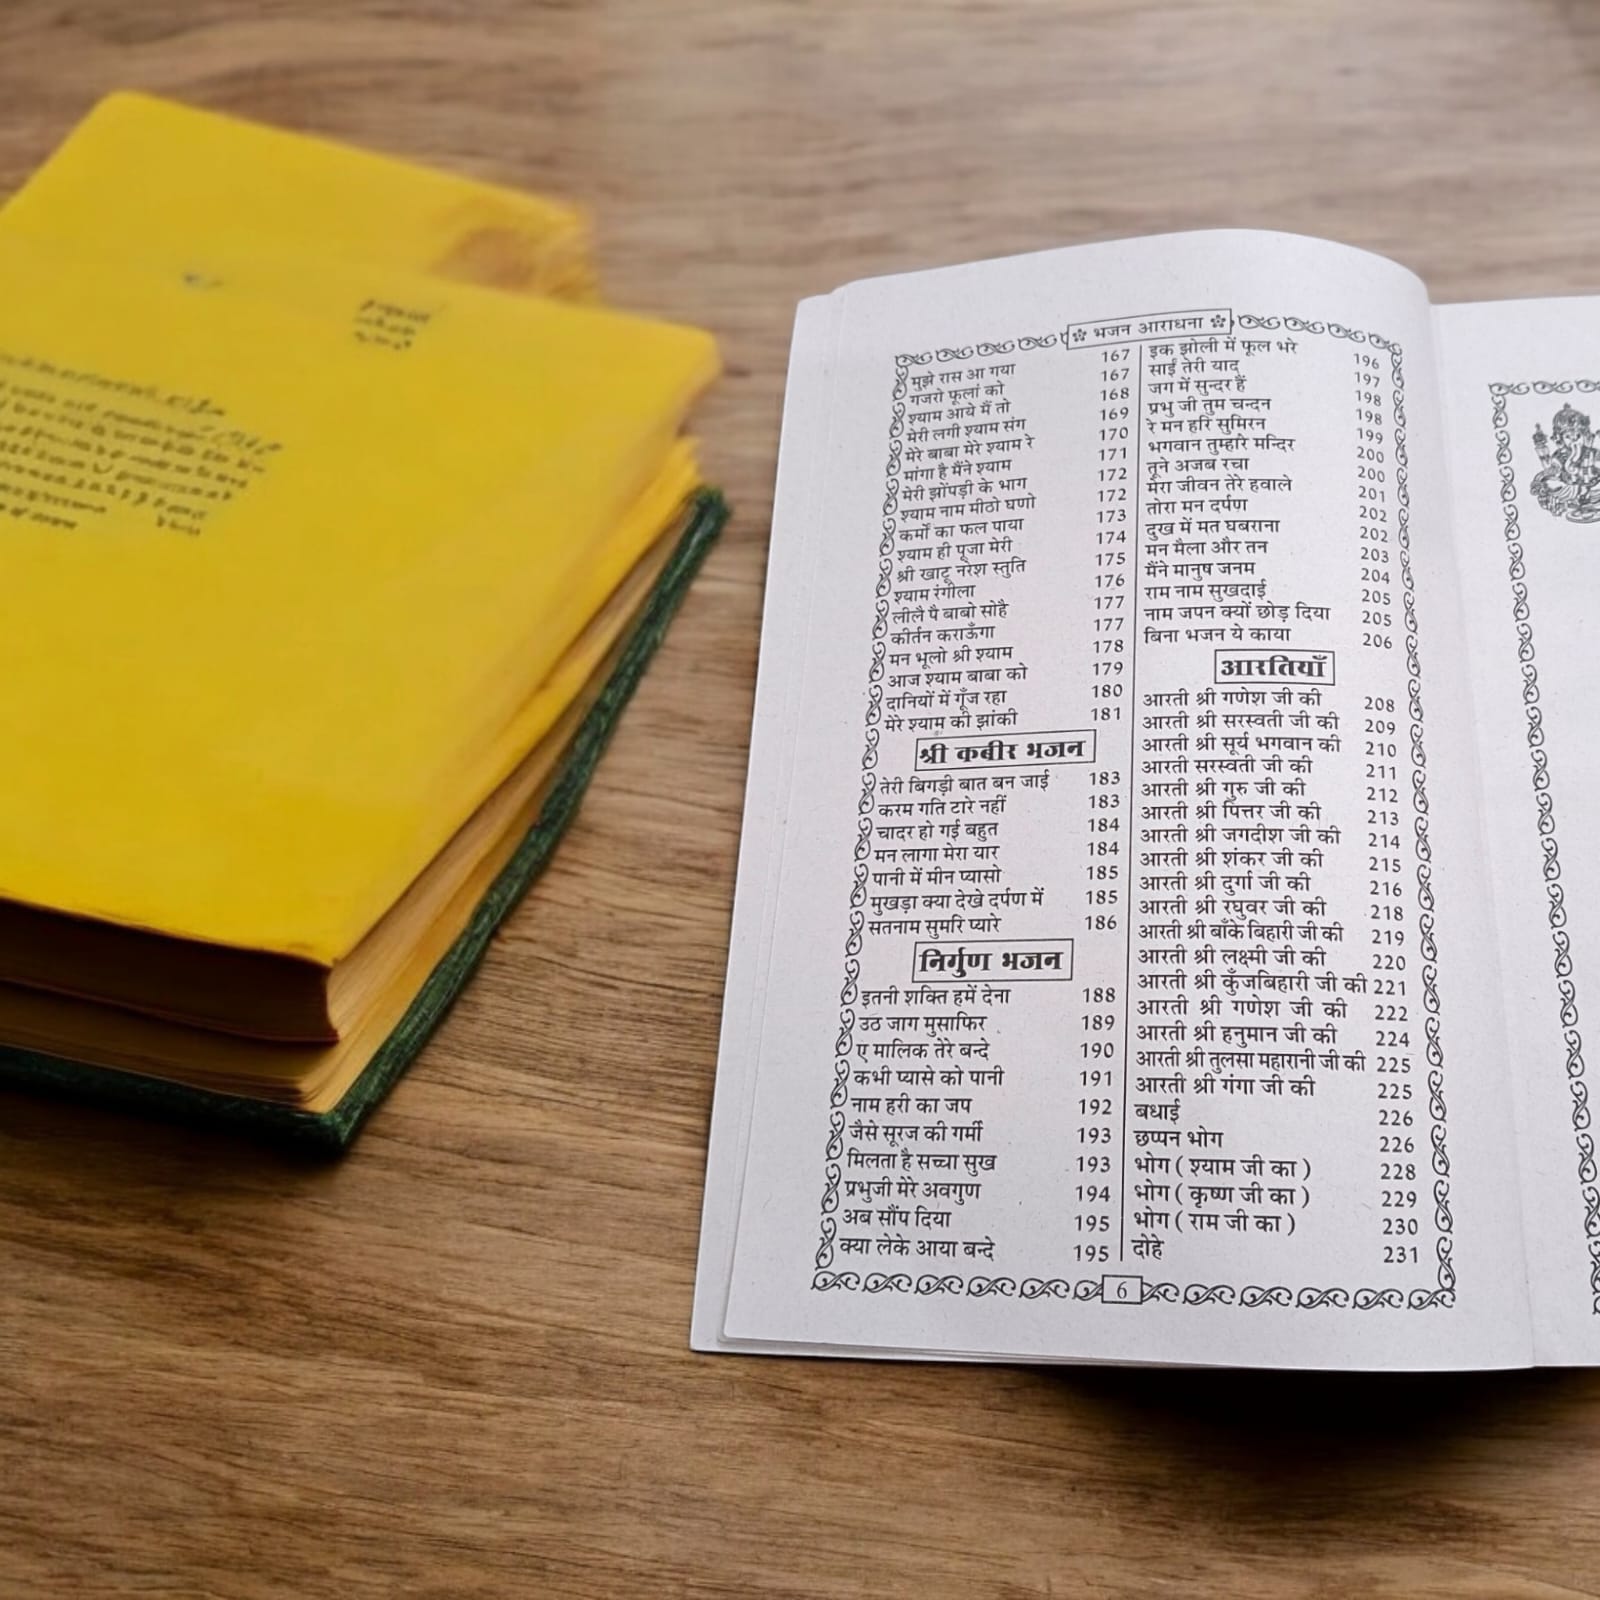 भजन आराधना
मुझे रास आ गया 167
गजरो फूलां को 167
श्याम आये मैं तो 168
मेरी लगी श्याम संग 169
मेरे बाबा मेरे श्याम रे 170
मांगा है मैंने श्याम 171
मेरी झोंपड़ी के भाग 172
श्याम नाम मीठो घणो 172
कर्मों का फल पाया 173
श्याम ही पूजा मेरी 174
श्री खाटू नरेश स्तुति 175
श्याम रंगीला 176
लीलै पै बाबो सोहै 177
कीर्तन कराऊँगा 177
मन भूलो श्री श्याम 178
आज श्याम बाबा को 179
दानियों में गूँज रहा 180
मेरे श्याम की झांकी 181
श्री कबीर भजन
तेरी बिगड़ी बात बन जाई 183
करम गति टारे नहीं 183
चादर हो गई बहुत 184
मन लागा मेरा यार 184
पानी में मीन प्यासो 185
मुखड़ा क्या देखे दर्पण में 185
सतनाम सुमरि प्यारे 186
निर्गुण भजन
इतनी शक्ति हमें देना 188
उठ जाग मुसाफिर 189
ए मालिक तेरे बन्दे 190
कभी प्यासे को पानी 191
नाम हरी का जप 192
जैसे सूरज की गर्मी 193
मिलता है सच्चा सुख 193
प्रभुजी मेरे अवगुण 194
अब सौंप दिया 195
क्या लेके आया बन्दे 195
इक झोली में फूल भरे 196
साईं तेरी याद 197
जग में सुन्दर हैं 198
प्रभु जी तुम चन्दन 198
रे मन हरि सुमिरन 199
भगवान तुम्हारे मन्दिर 200
तूने अजब रचा 200
मेरा जीवन तेरे हवाले 201
तोरा मन दर्पण 202
दुख में मत घबराना 202
मन मैला और तन 203
मैंने मानुष जनम 204
राम नाम सुखदाई 205
नाम जपन क्यों छोड़ दिया 205
बिना भजन ये काया 206
आरतियाँ
आरती श्री गणेश जी की 208
आरती श्री सरस्वती जी की 209
आरती श्री सूर्य भगवान की 210
आरती सरस्वती जी की 211
आरती श्री गुरु जी की 212
आरती श्री पित्तर जी की 213
आरती श्री जगदीश जी की 214
आरती श्री शंकर जी की 215
आरती श्री दुर्गा जी की 216
आरती श्री रघुवर जी की 218
आरती श्री बाँके बिहारी जी की 219
आरती श्री लक्ष्मी जी की 220
आरती श्री कुँजबिहारी जी की 221
आरती श्री गणेश जी की 222
आरती श्री हनुमान जी की 224
आरती श्री तुलसा महारानी जी की 225
आरती श्री गंगा जी की 225
बधाई 226
छप्पन भोग 226
भोग ( श्याम जी का ) 228
भोग ( कृष्ण जी का ) 229
भोग ( राम जी का ) 230
दोहे 231
6